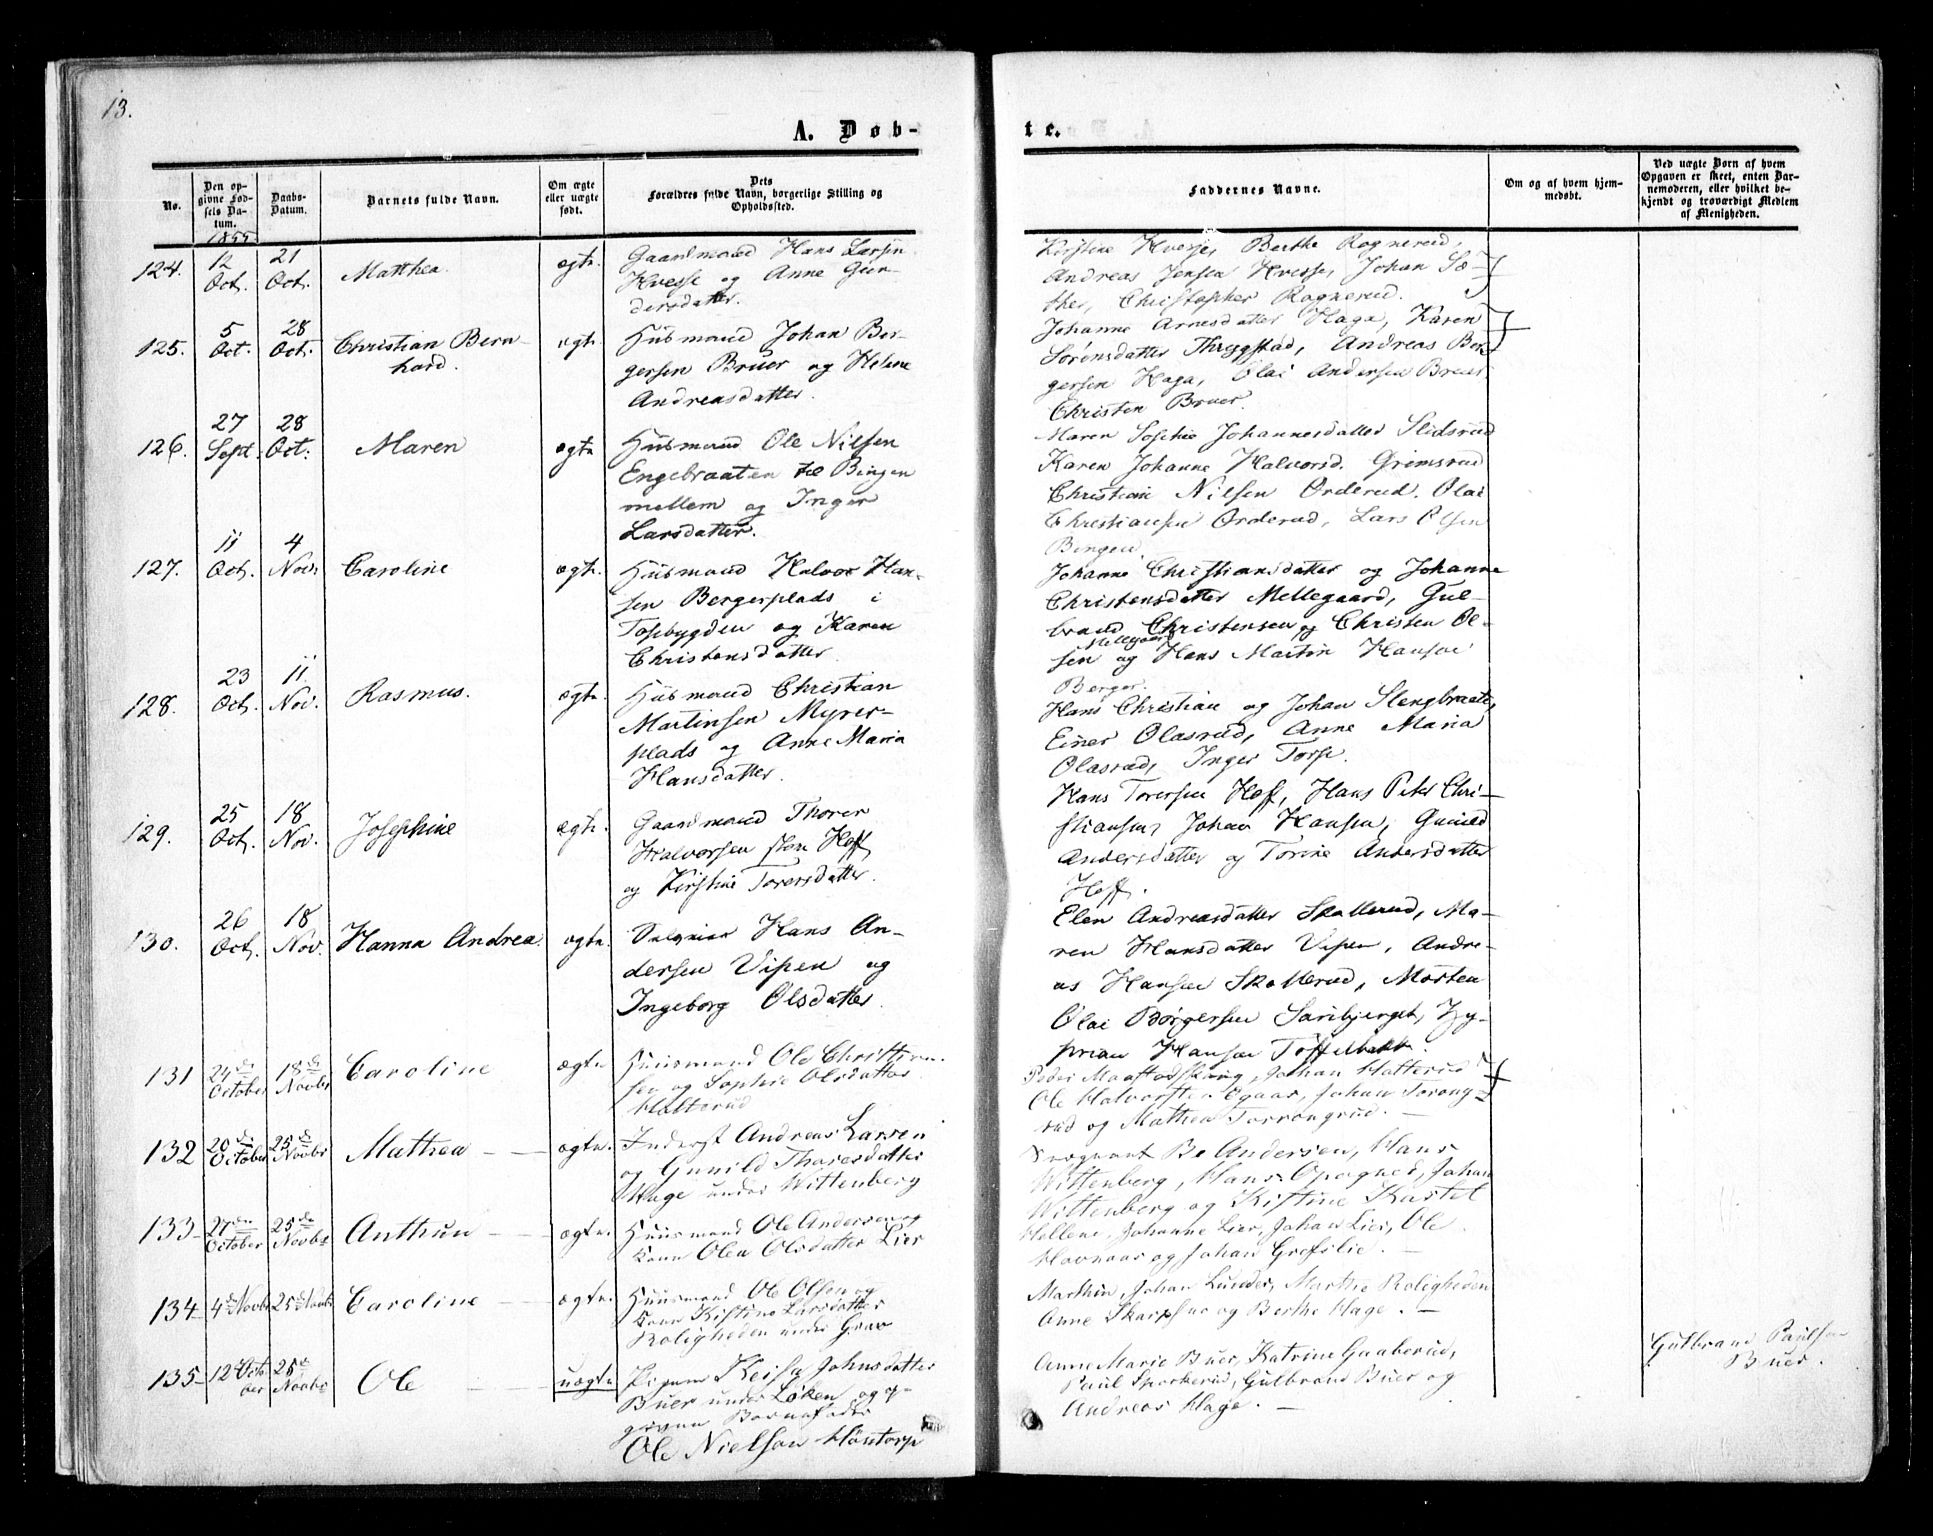 13.
A. Døb-
te.
No.
Den op-
givne Fød-
sels Da-
tum.
Daabs-
Datum.
Barnets fulde Navn.
Om ægte
eller uægte
født.
Dets
Forældres fulde Navn, borgerlige Stilling og
Opholdssted.
Faddernes Navne.
Om og af hvem hjem-
medøbt.
Ved uægte Børn af hvem
Opgaven er skeet, enten Bar-
nemoderen, eller hvilket be-
kjendt og troværdigt Medlem
af Menigheden.
1855
124. 12 Oct. 21 Oct. Matthea. ægte.
Gaardmand Hans Larsen
Kvesse og Anne Gun-
dersdatter.
Kirstine Kvesje, Berthe Rognerud,
Andreas Jensen Kvesse, Johan Sæ-
ther, Christopher Rognerud.
125. 5 Oct. 28 Oct. Christian Bern-
hard. ægte.
Husmand Johan Ber-
gersen Bruer og Helene
Andreasdatter.
Johanne Arnesdatter Haga, Karen
Sørensdatter Thregstad, Andreas Ber-
gersen Haga, Olai Andersen Bruer
Christen Bruer.
126. 27 Sept. 28 Oct. Maren ægte
Husmand Ole Nilsen
Engebraaten til Bingen
mellem og Inger
Larsdatter.
Maren Sophie Johannesdatter Slidsrud
Karen Johanne Halvorsd. Grimsrud
Christian Nilsen Orderud. Olai
Christiansen Orderud, Lars Olsen
Bingen.
127. 11 Oct. 4 Nov. Caroline ægte.
Husmand Halvor Han-
sen Bergerplads i
Tosebygden og Karen
Christensdatter.
Johanne Christiansdatter og Johanne
Christensdatter Mellegaard, Gul-
brand Christensen og Christen Ol-
Mellegaard
sen og Hans Martin Hansen
Berger.
128. 23 Oct. 11. Nov. Rasmus. ægte.
Husmand Christian
Martinsen Myrer-
plads og Anne Maria
Hansdatter.
Hans Christian og Johan Slengbraate,
Einer Olasrud, Anne Maria
Olasrud, Inger Torp.
129. 25 Oct. 18 Nov. Josephine ægte.
Gaardmand Thorer
Halvorsen store Hoff
og Kirstine Torersdatter.
Hans Torersen Hoff, Hans Peter Chri-
stiansen, Johan Hansen, Gunild
Andersdatter og Torine Andersdatter
Hoff.
130. 26 Oct. 18 Nov. Hanna Andrea. ægte.
Hans An-
dersen Vipen og
Ingeborg Olsdatter.
Elen Andreasdatter Skallerud, Ma-
ren Hansdatter Vipen, Andre-
as Hansen Skallerud, Morten
Olai Børgersen Saribjerget, Zy-
prian Hansen Toffelbakk.
131 24de October 18de Novbr Caroline ægte.
Huusmand Ole Christian-
sen og Sophie Olsdatter
Hatterud
Peder Johan Hatterud
Ole Halvorsen Ogaar, Johan Torong-
rud og Mathea Torrongrud. —
132 20de October 25de Novbr Mathea — — ægte.
Inderst Andreas Larsen
og Gunild Thoresdatter
Hage under Wittenberg
Bo Andersen, Hans
Wittenberg, Hans Opegned, Johan
Wittenberg og Kistine Kastel
133— 27de October 25de Novbr Anthun — — ægte.
Huusmand Ole Andersen og
Kone Olea Olsdatter Lier
Hellene, Johanne Lier, Johan Lier, Ole
Havnaas og Johan Grefslie. —
134— 4de Novbr 25de Novbr Caroline — ægte.
Huusmand Ole Olsen og
Kone Kistine Larsdatter
Roligheden under Grav
Marthin, Johan Lunder, Marthe Roligheden
Anne Skarpsno og Berthe Hage. —
135— 12 October 25de Novbr Ole — — uægte
Pigerne Keisa Johnsdatter
Buer under Løken og op-
given Barnefader
Ole Nielsen Høntorp
Anne Marie Buer, Katrine Gaaberud,
Paul Sparkerud, Gulbrand Buer og
Andreas Hage. —
Gulbrand Paulsen
Buer.